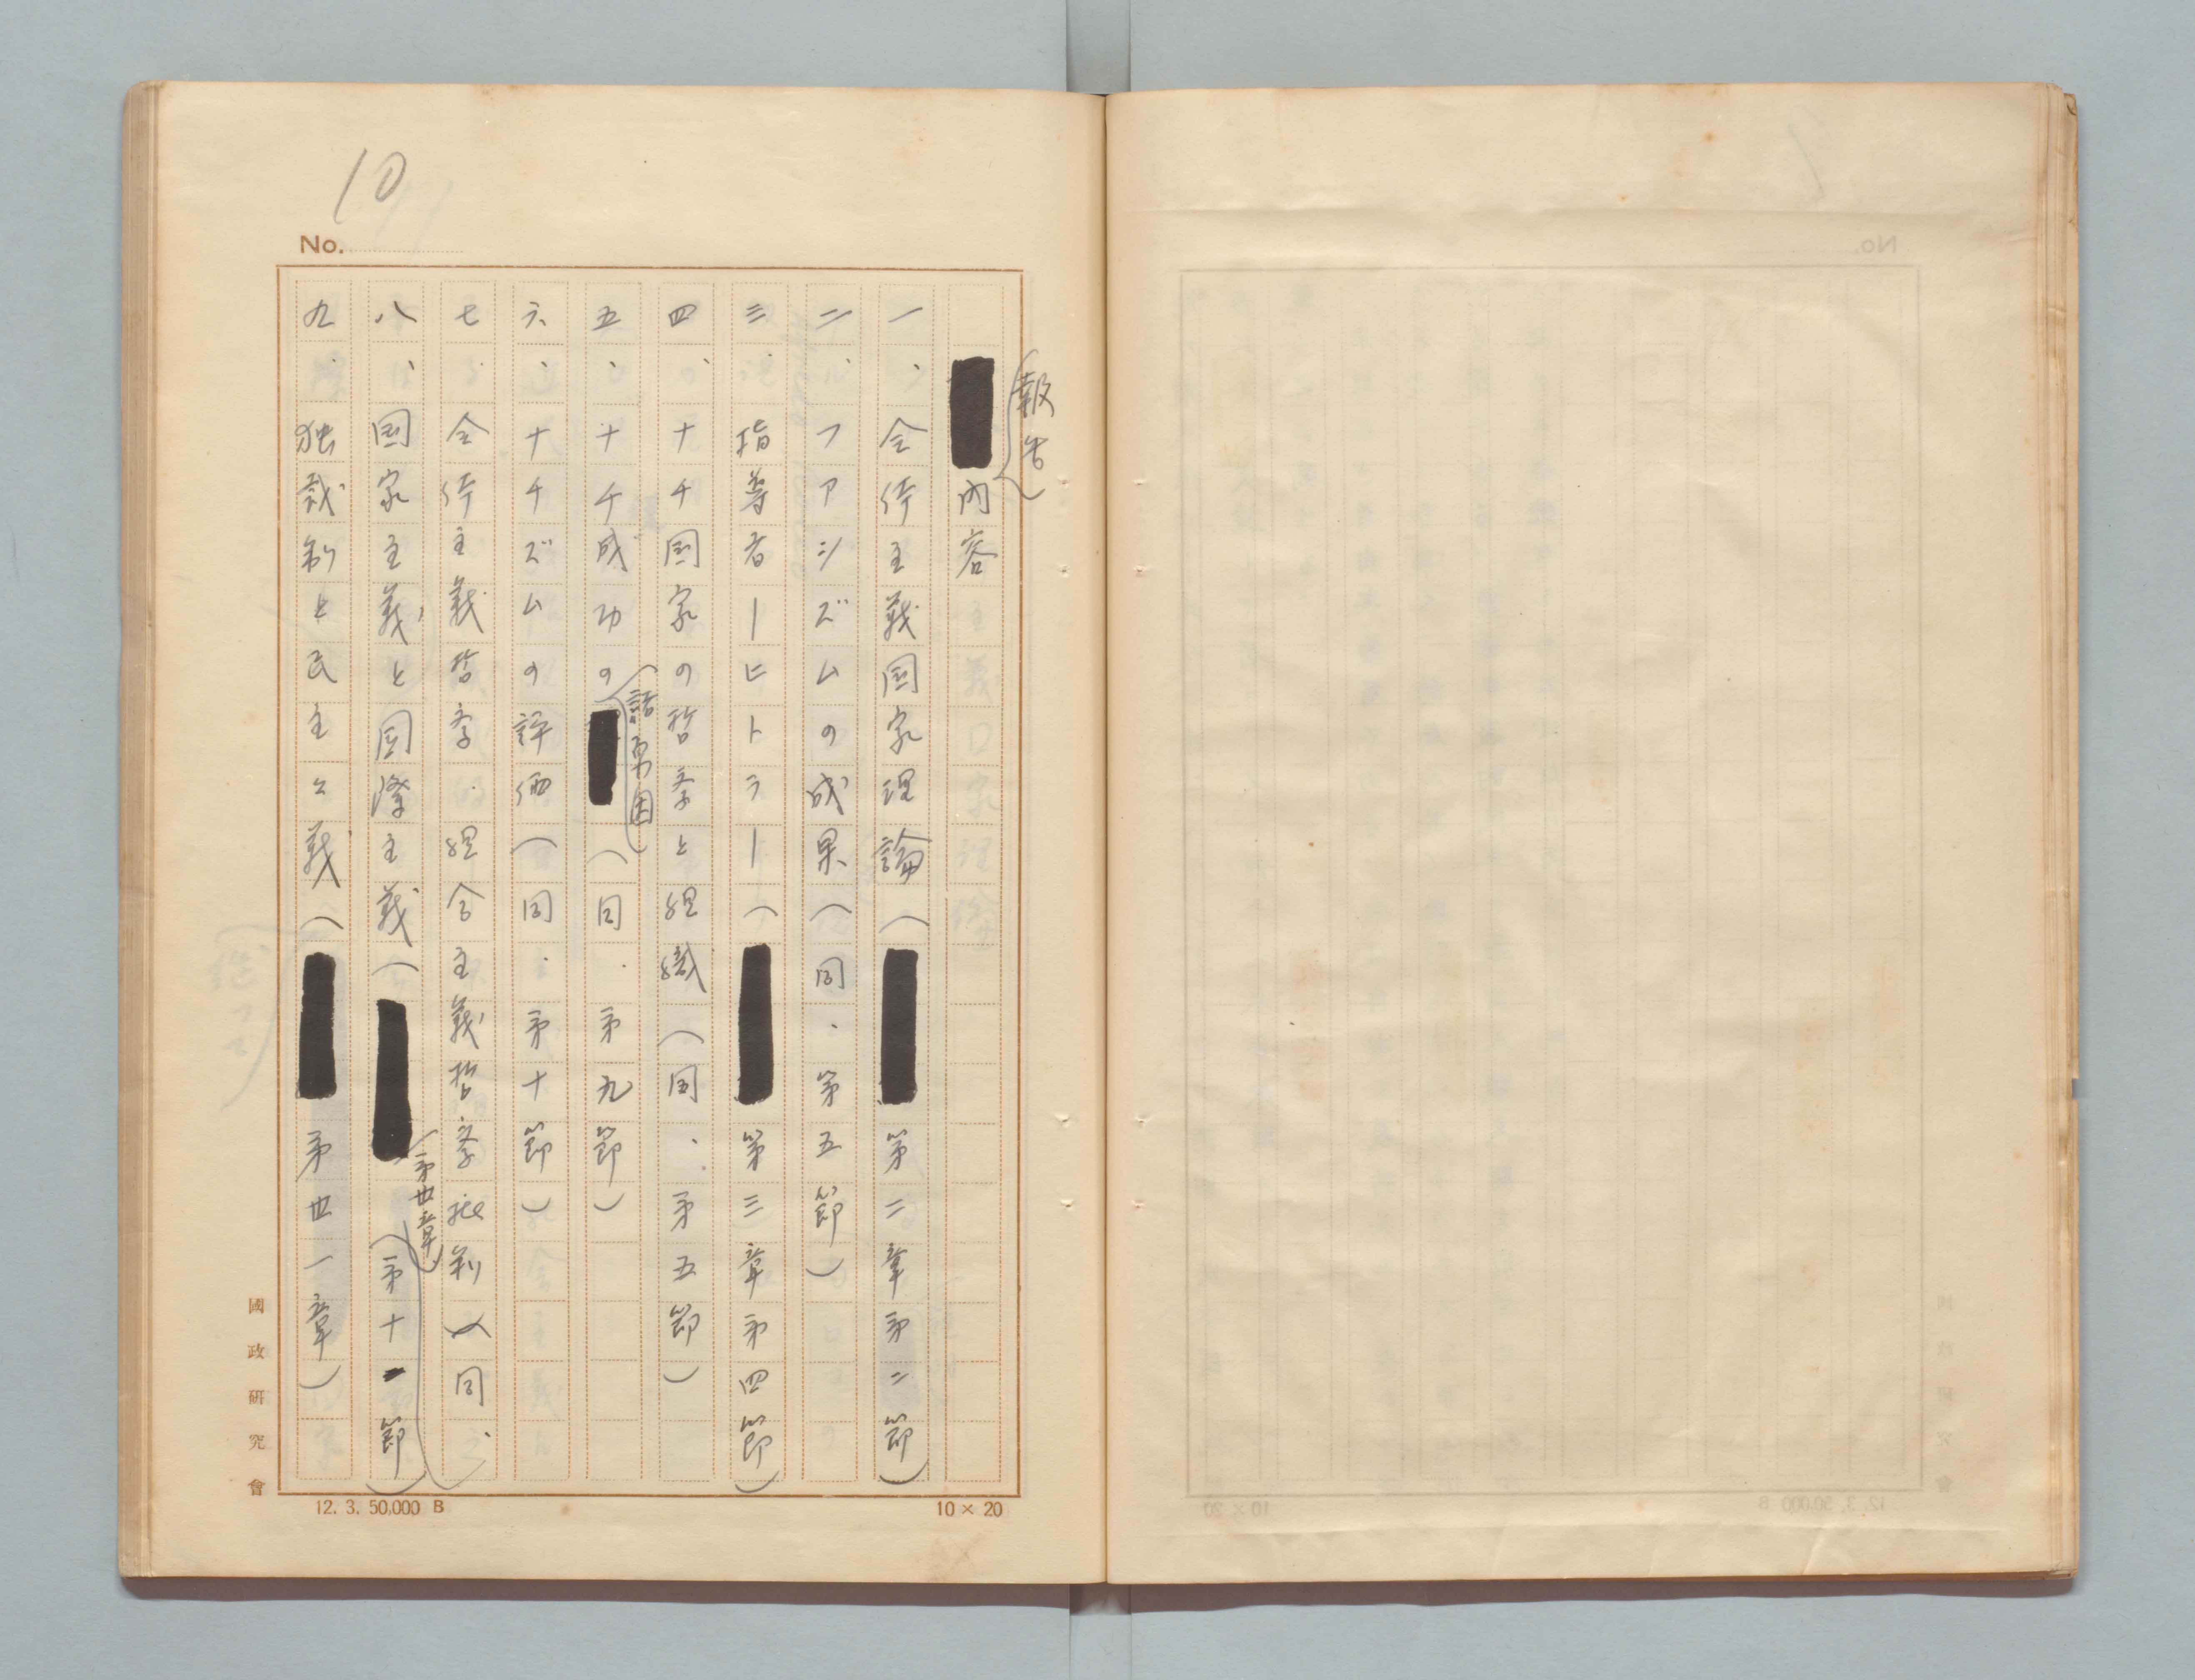 10
No.
報告
内容
一、全体主義国家理論(第二章第二節)
二、フアシズムの成果(同、第五節)
三、指導者―ヒトラー(第三章第四節)
四、ナチ国家の哲学と組織(同、第五節)
五、ナチ成功の諸原因(同、第九節)
六、ナチズムの評価(同、第十節)
七、全体主義哲学、組合主義哲学批判(同、第十一節)
八、国家主義と国際主義(第廿章)
九、独裁制と民主々義(第廿一章)
國政研究會
12. 3. 50,000 B
10×20